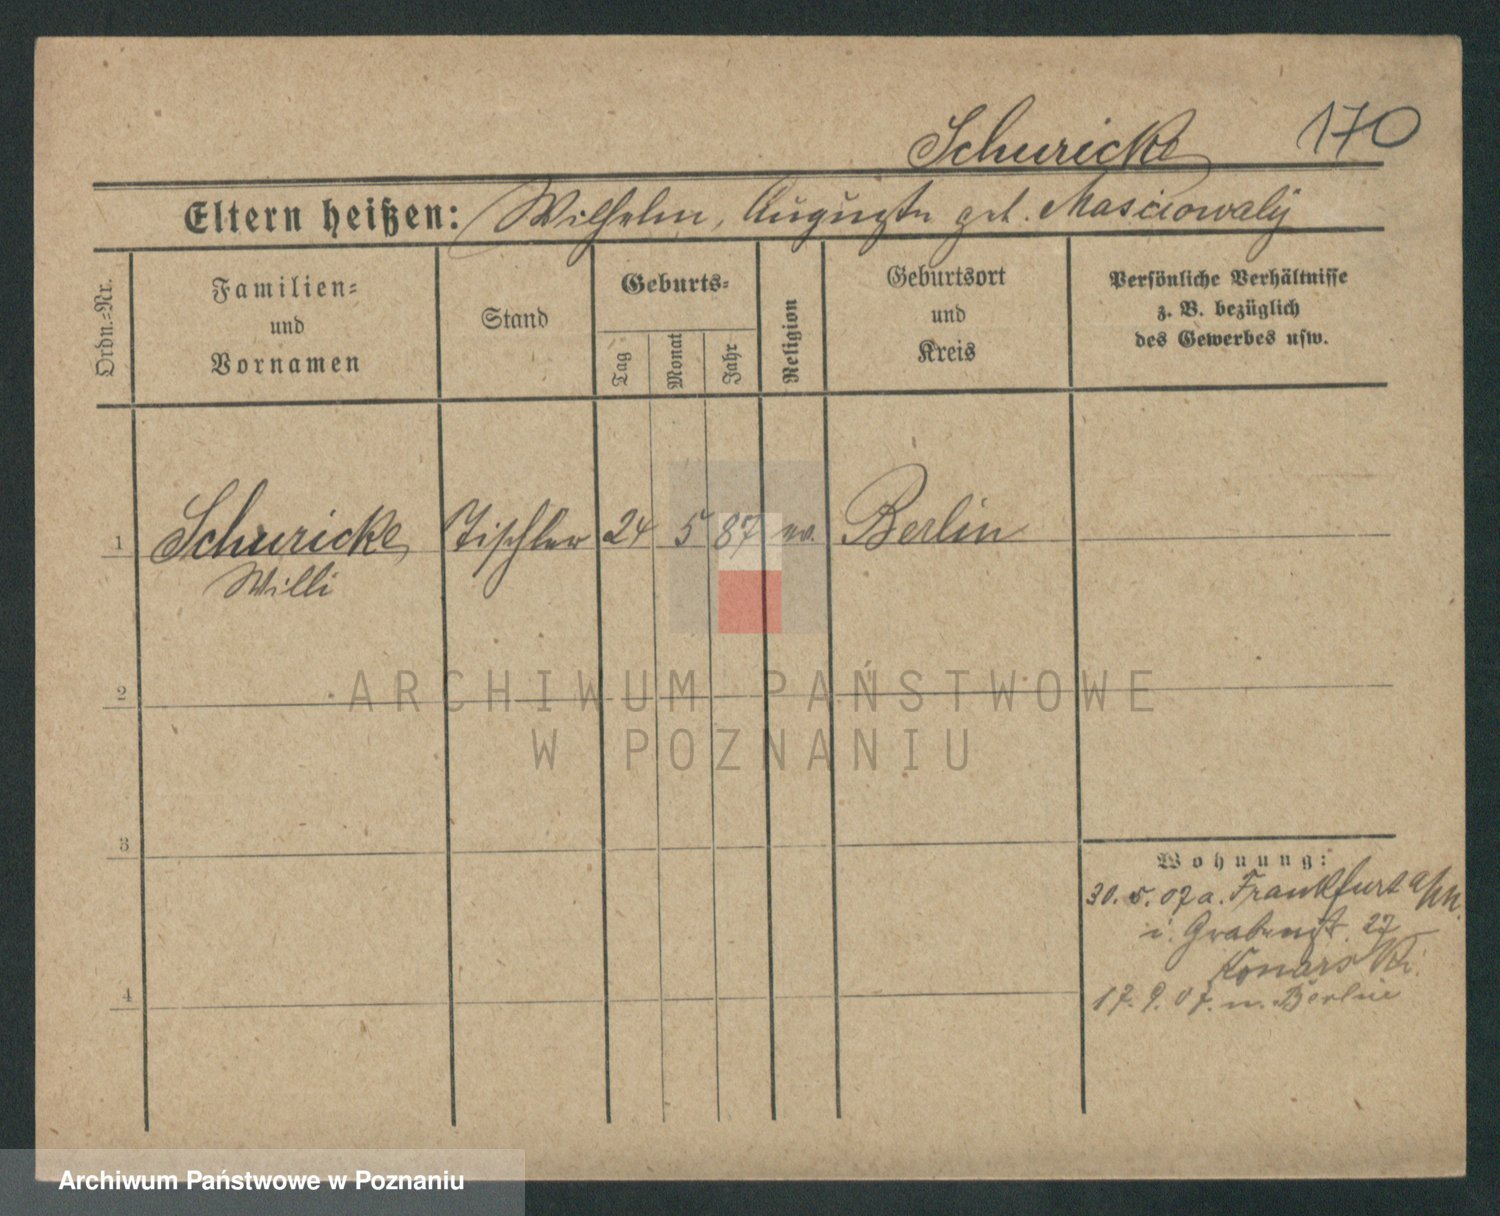 Schuricke 170
Eltern heißen: Wilhelm, Auguste geb. Masciowaly
Ordn.=Nr.
Familien=
und
Vornamen
Stand
Geburts=
Tag
Monat
Jahr
Religion
Geburtsort
und
Kreis
Persönliche Verhältnisse
z. B. bezüglich
des Gewerbes usw.
1 Schuricke Tischler 24 5 87 ev. Berlin
Willi
2
3
4
Wohnung:
30. 5. 07 a. Frankfurt a/M.
i. Grabenst. 27
Konarski.
17. 9. 07. n. Berlin
ARCHIWUM PAŃSTWOWE
W POZNANIU
Archiwum Państwowe w Poznaniu